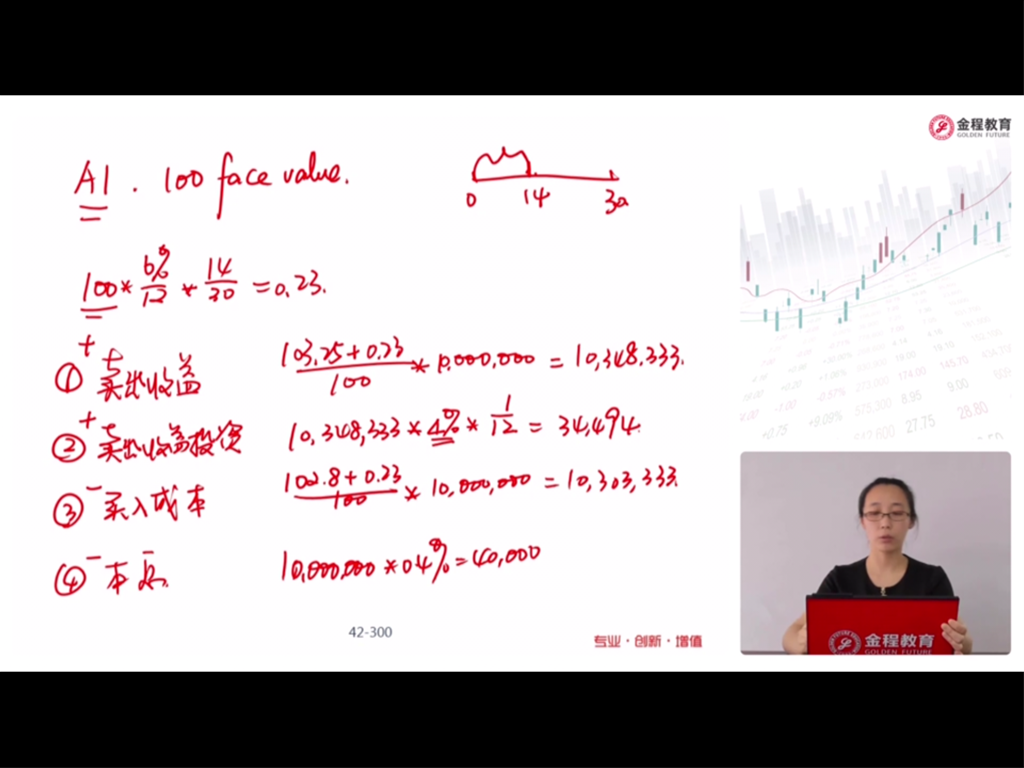 金程教育
GOLDEN FUTURE
AI . 100 face value.
0 14 30
100 * 6%/12 * 14/30 = 0.23.
+ ① 卖出收益 (103.25+0.23)/100 * 10,000,000 = 10,348,333.
+ ② 卖出收益投资 10,348,333 * 4% * 1/12 = 34,494.
- ③ 买入成本 (102.8+0.23)/100 * 10,000,000 = 10,303,333.
- ④ 本 10,000,000 * 0.4% = 40,000
42-300
专业·创新·增值
金程教育
GOLDEN FUTURE